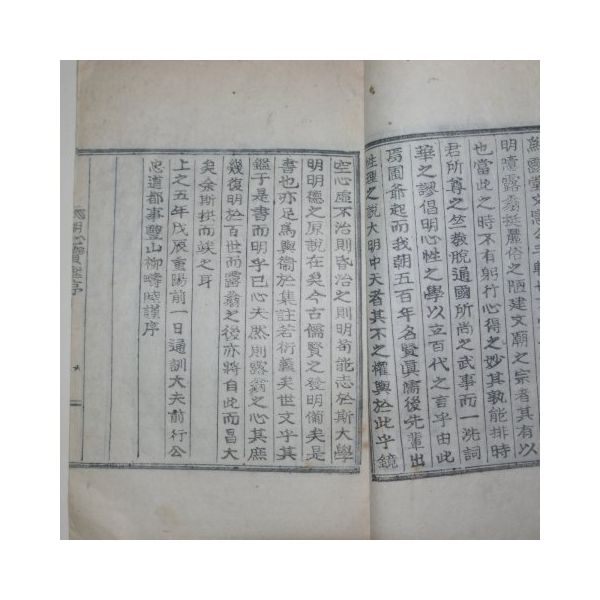 露堂文
明時露翁挺麗俗之陋建文廟之宗者其有以
也當此之時不有躬行心得之妙其孰能排時
君所尊之竺敎脫通國所尚之武事而一洗詞
華之謬倡明心性之學以立百代之言乎由此
焉園爺起而我朝五百年名賢眞儒後先輩出
性理之說大明中天者其不之權輿於此乎鏡
空心虛不治則昏治之則明苟能志於斯大學
明明德之原說在矣今古儒賢之發明備矣是
書也亦足爲輿衛於集註若衍義矣世文乎其
鑑于是書而明乎己心夫然則露翁之心其庶
幾復明於百世而露翁之後亦將自此而昌大
矣余斯拱而竢之耳
上之五年戊辰重陽前一日通訓大夫前行公
忠道都事豐山柳疇睦謹序
明心寶鑑序